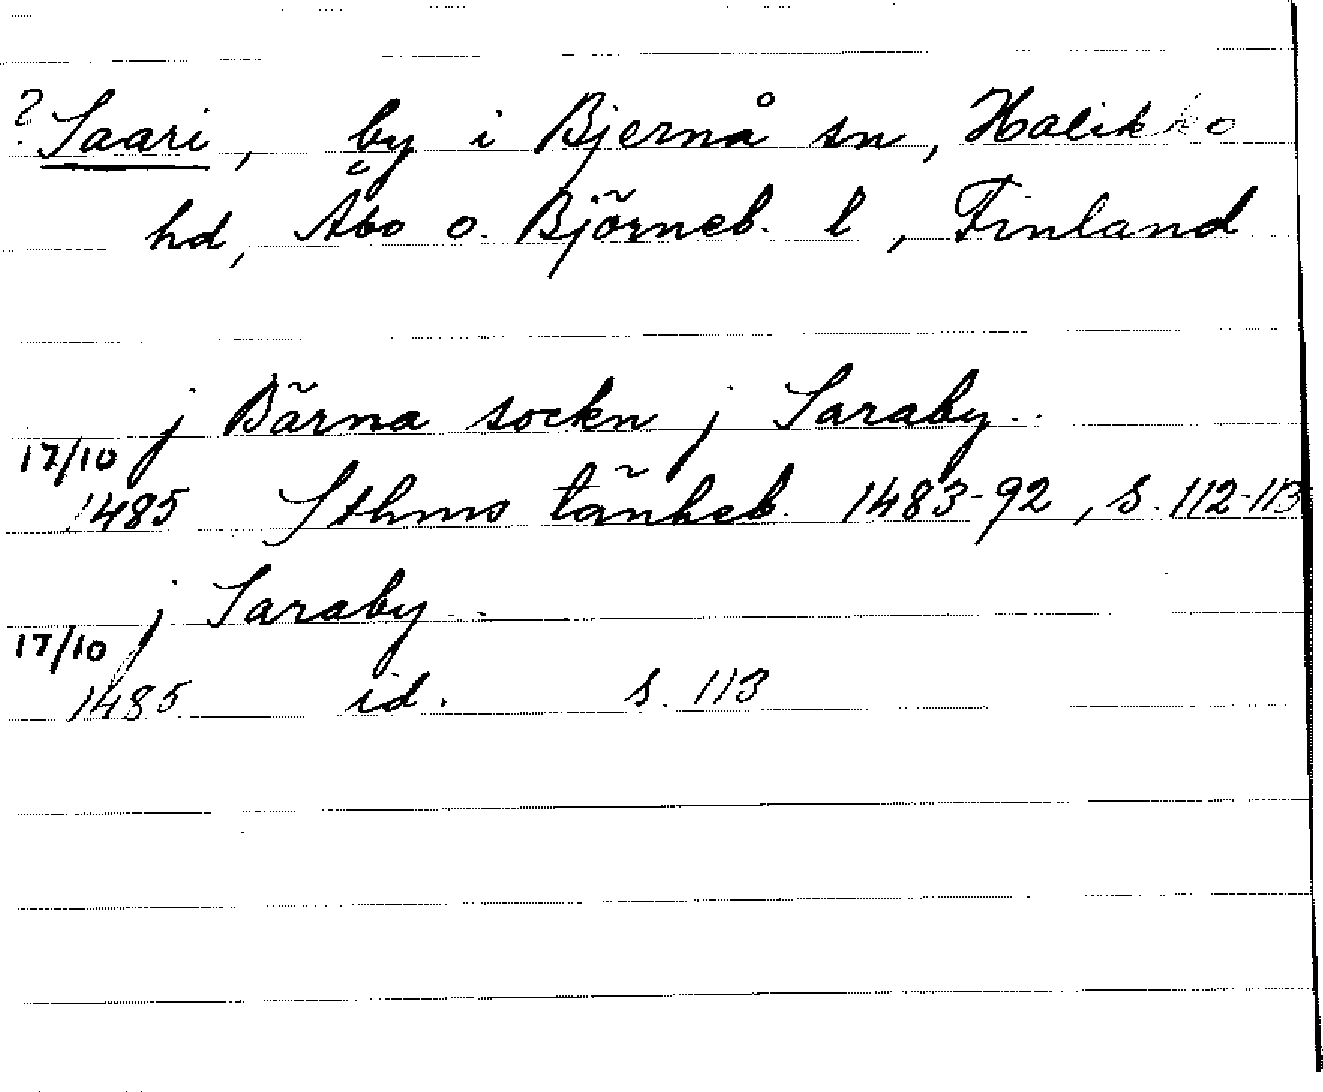 ? Saari, by i Bjernå sn, Halikko
hd, Åbo o. Björneb. l, Finland
j Bärna sockn j Saraby..
17/10
1485 Sthms tänkeb. 1483-92, s. 112-113
j Saraby..
17/10
1485 id. s. 113